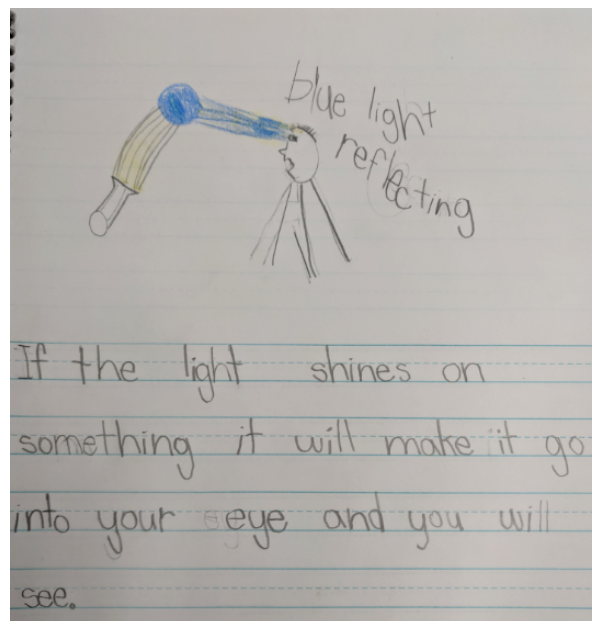 blue light
reflecting
If the light shines on
something it will make it go
into your eye and you will
see.